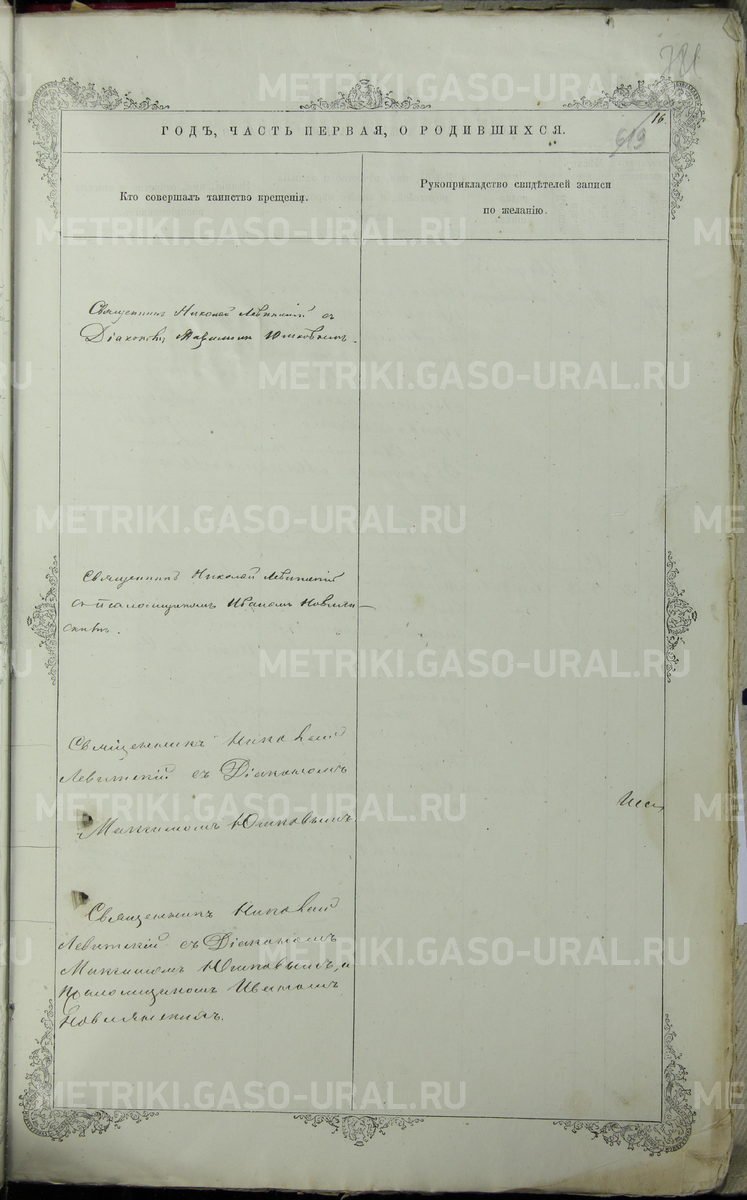 781
16.
619
ГОДЪ, ЧАСТЬ ПЕРВАЯ, О РОДИВШИХСЯ.
Кто совершалъ таинство крещенія.
Рукоприкладство свидѣтелей записи
по желанію.
Священникъ Николай Левитскій съ
Діакономъ Максимомъ Юшковымъ.
Священникъ Николай Левитскій
съ псаломщикомъ Иваномъ Новиль-
скимъ.
Священникъ Николай
Левитскій съ Діакономъ
Максимомъ Юшковымъ.
Священникъ Николай
Левитскій съ Діакономъ
Максимомъ Юшковымъ, и
Псаломщикомъ Иваномъ
METRIKI.GASO-URAL.RU